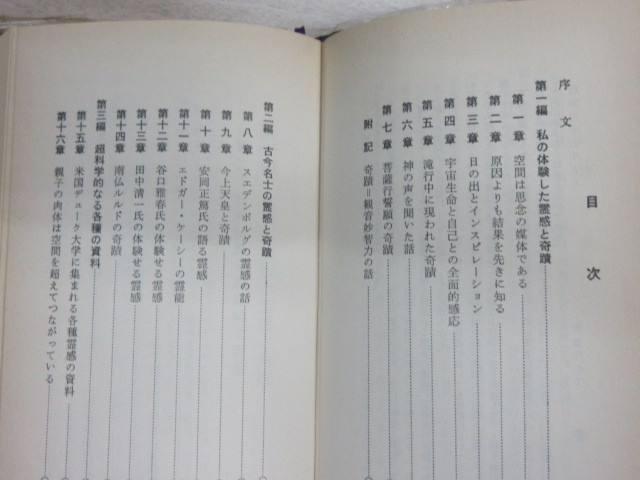 目次
序文
第一編 私の体験した霊感と奇蹟
第一章 空間は思念の媒体である
第二章 原因よりも結果を先きに知る
第三章 日の出とインスピレーション
第四章 宇宙生命と自己との全面的感応
第五章 滝行中に現われた奇蹟
第六章 神の声を聞いた話
第七章 菩薩行誓願の奇蹟
附記 奇蹟=観音妙智力の話
第二編 古今名士の霊感と奇蹟
第八章 スエデンボルグの霊感の話
第九章 今上天皇と奇蹟
第十章 安岡正篤氏の語る霊感
第十一章 エドガー・ケーシーの霊能
第十二章 谷口雅春氏の体験せる霊感
第十三章 田中清一氏の体験せる霊感
第十四章 南仏ルルドの奇蹟
第三編 超科学的なる各種の資料
第十五章 米国デューク大学に集まれる各種霊感の資料
第十六章 親子の肉体は空間を超えてつながっている